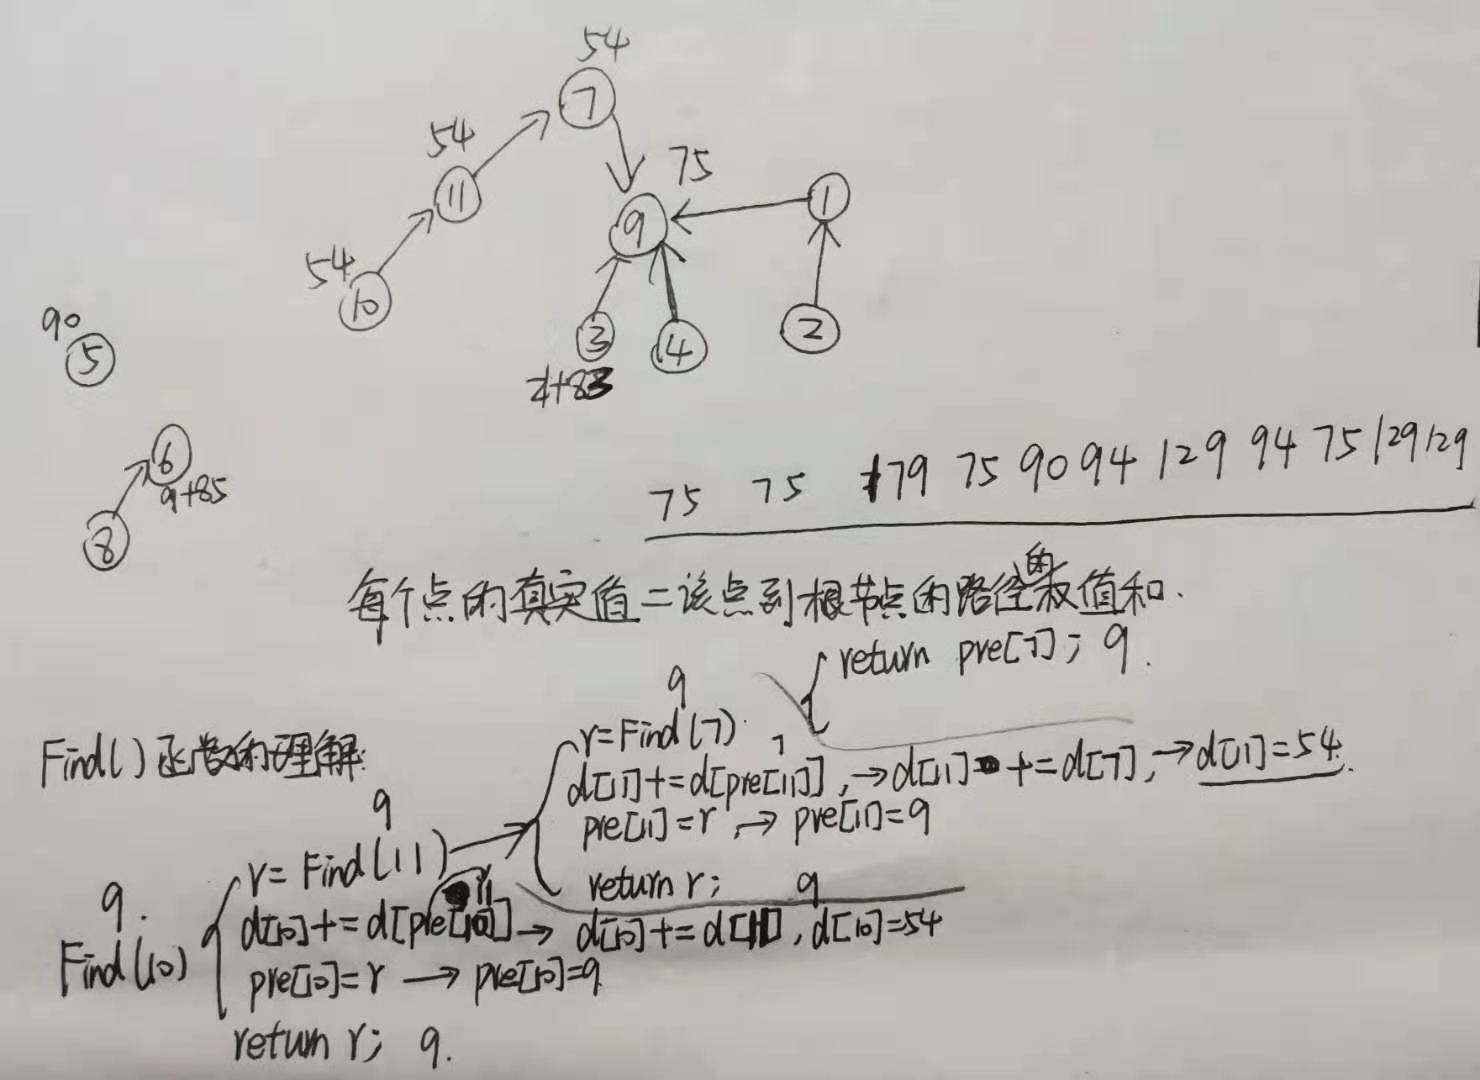 54
7
54
75
11
1
9
54
10
90
5
3
4
2
4+83
6
9+85
8
75 75 179 75 90 94 129 94 75 129 129
每个点的真实值=该点到根节点的路径的权值和.
return pre[7]; 9.
9
r=Find(7)
Find()函数的理解:
d[11]+=d[pre[11]], → d[11] += d[7], → d[11]=54.
7
pre[11]=r, → pre[11]=9
return r; 9
9
r= Find(11)
11
d[10]+=d[pre[10]] → d[10]+=d[11], d[10]=54
9.
Find(10)
pre[10]=r → pre[10]=9
return r; 9.